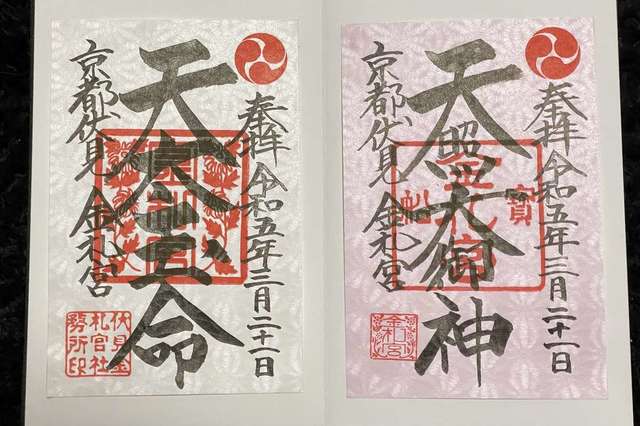 奉拝 令和五年三月二十一日
天照大御神
京都伏見 金札宮
金札宮
奉拝 令和五年三月二十一日
天太玉命
京都伏見 金札宮
伏見金
札宮社
務所印